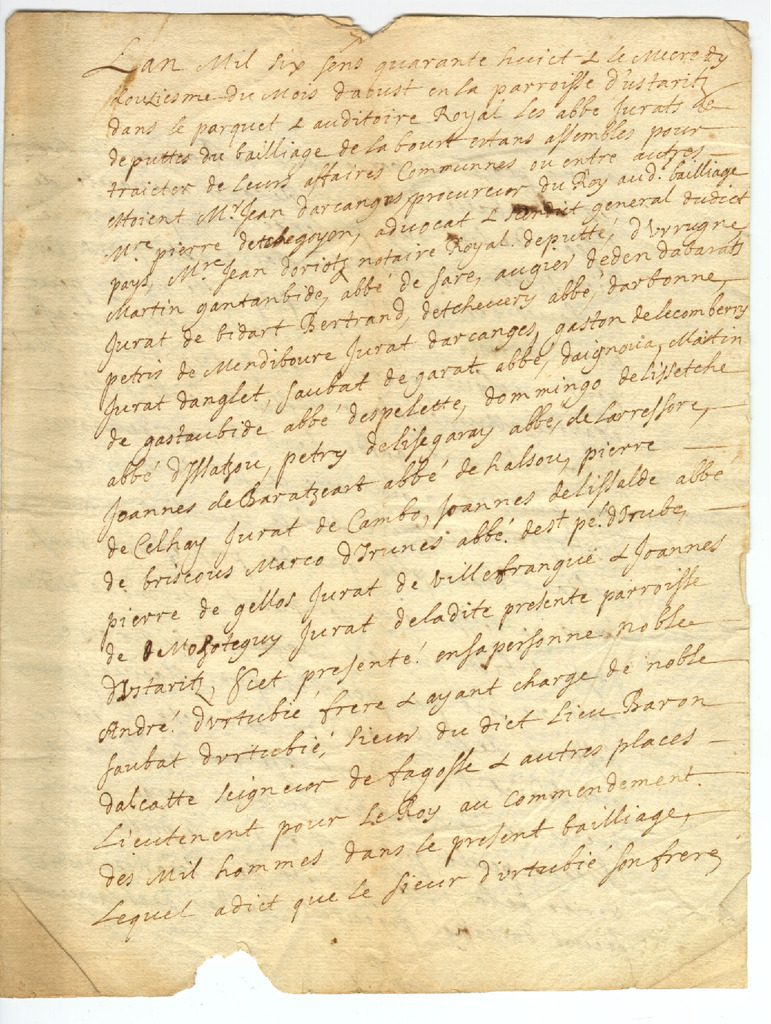 Lan Mil six sens quarante huict & le Mecredy
douziesme du Mois daoust en la parroisse d'ustaritz
dans le parquet & auditoire Royal les abbe Jurats &
deputtes du bailliage de labourt estans assembles pour
traicter de leurs affaires Communnes ou entre autres
estoient Mr Jean darcangos procureur du Roy aud. bailliage
Mre pierre detchegoyon, advocat & scindit general dudict
pays, Mre Jean doriotz notaire Royal deputté, d'urrugne
Martin gantanbide, abbé de sare, augier deden dabarats
Jurat de bidart Bertrand, detchevery abbé darbonne
petris de Mendiboure Jurat darcanges, gaston de lecomberry
Jurat danglet, saubat de garat abbé, daignoüa, Martin
de gastaubide abbé despelette, dommingo delissetche
abbé d'Issatsou, petry delissegaray abbé, de larressore,
Joannes de Baratzeart abbé de halsou, pierre
de Celhay Jurat de Cambo, Joannes delissalde abbé
de briscous Marco d'Irunes abbé de st pé. d'Irube,
pierre de gellos Jurat de villefranque & Joannes
de Jurat deladite presente parroisse
d'Ustaritz, s'est presenté ensapersonne noble
André d'urtubié frere & ayant charge de noble
saubat d'urtubié, sieur du dict lieu Baron
dalcatte seigneur de fagosse & autres places
Lieutenent pour Le Roy au commendement
des Mil hommes dans le present bailliage,
Lequel adict que le sieur d'urtubié son frere